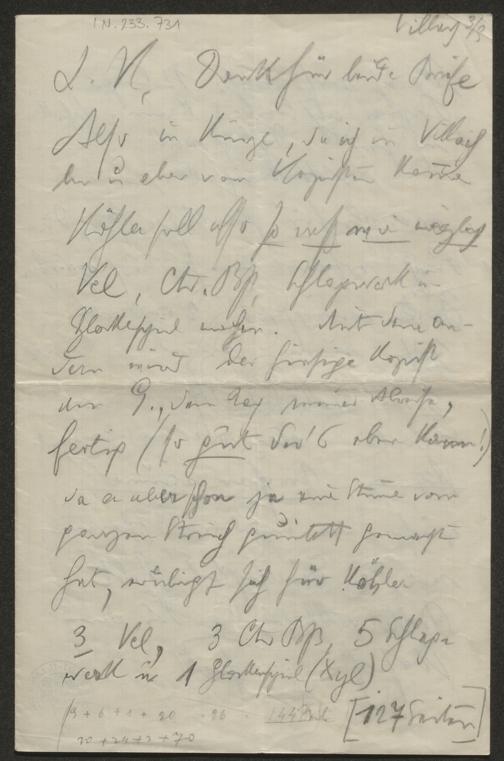 I.N. 233.731
Villach 3/3
L. H, Dank für beide Briefe
Also in Kürze, da ich in Villach
bin u eben vom Kopisten komme
Köhler soll also so rasch wie möglich
Vel, Ctr. Bß, Schlagwerk u
Glockenspiel machen. Mit dem an-
dern wird der hiesige Kopist
am 9., dem Tag meiner Abreise,
fertig (so gut das's eben kann!)
da er aber schon ja eine Stimme vom
ganzen Streichquintett gemacht
hat, erübrigt sich für Köhler
3 Vel, 3 Ctr Bß, 5 Schlag-
werk u 1 Glockenspiel (Xyl)
[127 Seiten]